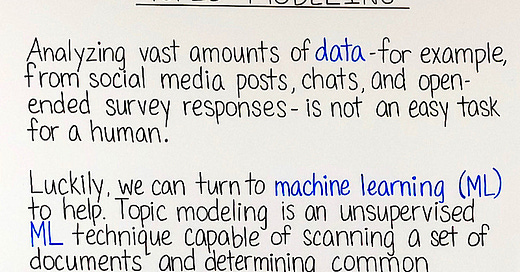 TOPIC MODELING
Analyzing vast amounts of data - for example,
from social media posts, chats, and open-
ended survey responses - is not an easy task
for a human.
Luckily, we can turn to machine learning (ML)
to help. Topic modeling is an unsupervised
ML technique capable of scanning a set of
documents and determining common